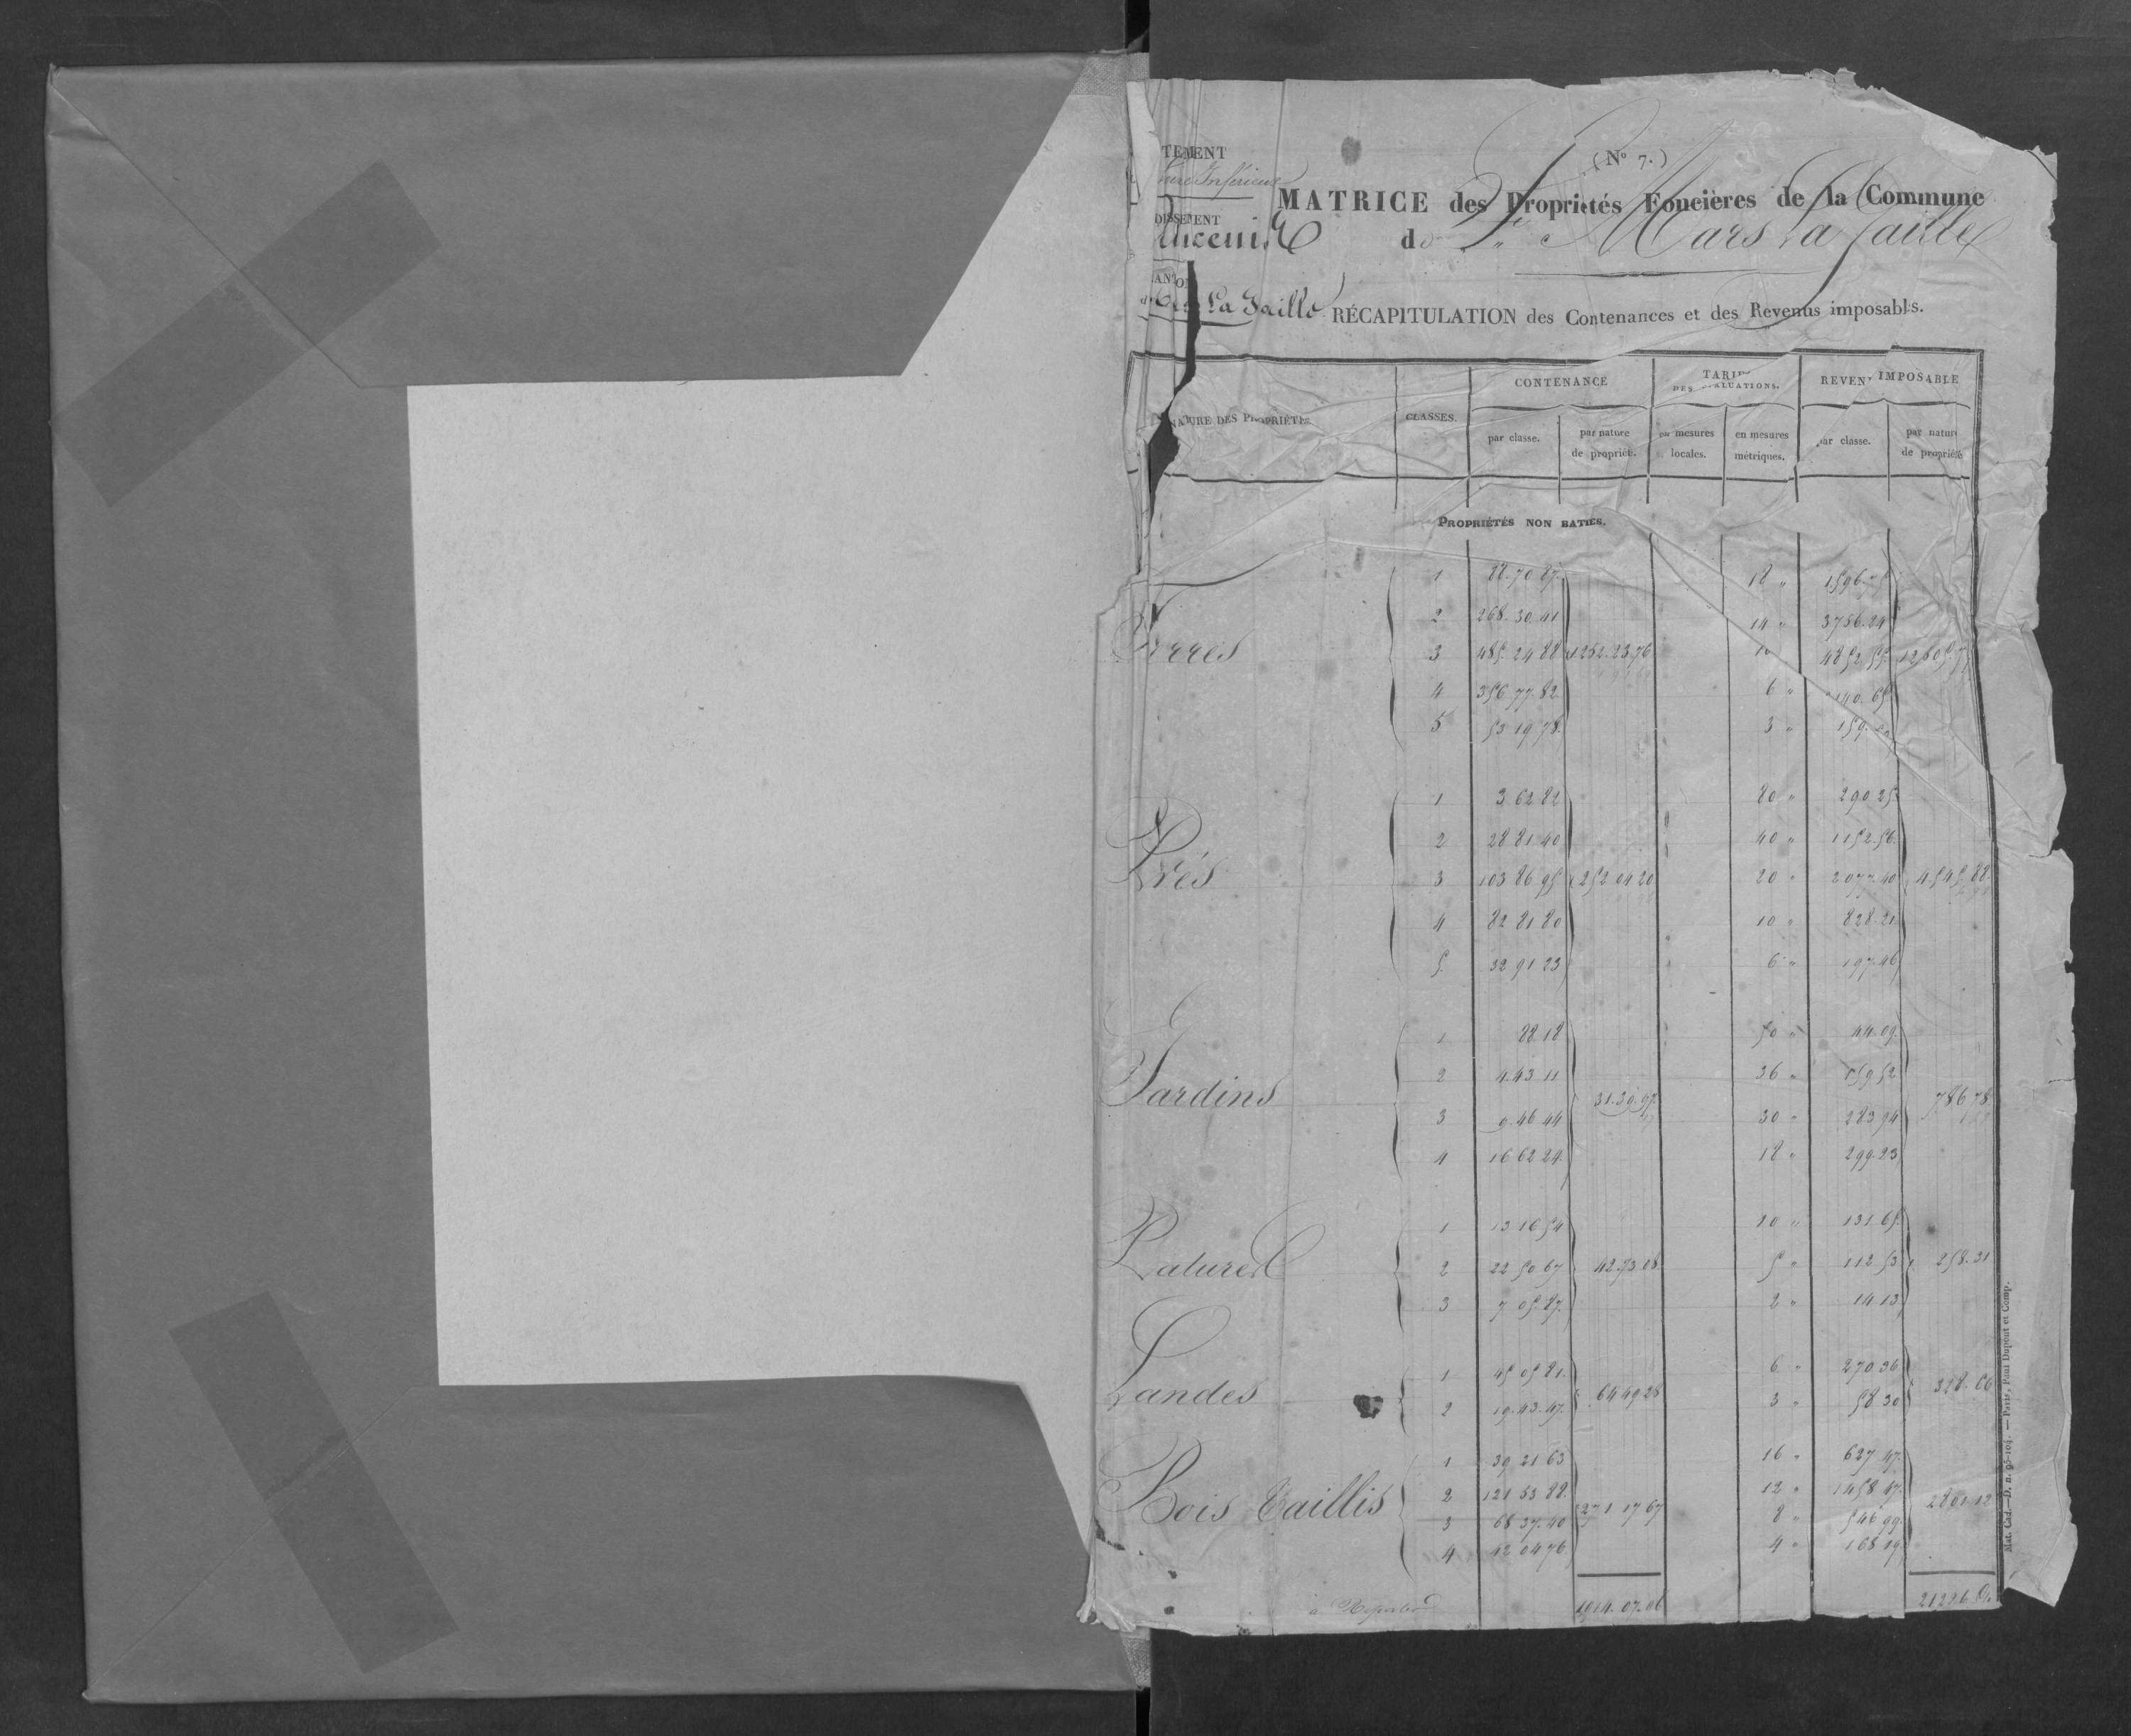 TEMENT
Inférieure
(N° 7.)
MATRICE des Propriétés Foncières de la Commune
DISSEMENT
Ancenis
d St Mars La Jaille
ANTON
La Jaille
RÉCAPITULATION des Contenances et des Revenus imposabl.s.
NATURE DES PROPRIÉTÉS. CLASSES. CONTENANCE TARIF DES ÉVALUATIONS. REVENU IMPOSABLE
par classe. par nature de propriété. en mesures locales. en mesures métriques. par classe. par nature de propriété
PROPRIÉTÉS NON BATIES.
1 88.70 87. 18 " 1596.75
2 268.30 41 14 " 3756.24
Terres 3 485.24 88 1252.23.76 10 4852.55
4 356 77.82 6 " 140.65
5 53 19 78. 3 " 159.
1 3 62 82 80 " 290 25
2 28 81 40 40 " 1152.56.
Prés 3 103 86 95 252 04 20 20 " 2077.40 4545.88.
4 82 81 80 10 " 828.21
5 32 91 23 6 " 197.46
1 88 18 50 " 44.09.
2 4.43 11 36 " 159 52
Jardins 31.39.97. 786 78
3 9.46 44 30 " 283 94
4 16 62 24. 18 " 299.23
1 13 16 54 10 " 131.65.
Patures 2 22 50 67 42.73 08. 5 " 112 53 258.31
3 7 05.87. 2 " 14 13
1 45 05 81. 6 " 270 36
Landes 64 49 28 328.66
2 19.43.47. 3 " 58 30
1 39 21 63 16 " 627 47.
Bois Taillis 2 121 53 88. 271 17 67 12 " 1458 47. 2801.12
3 68 37.40 8 " 546 99.
4 42 04 76. 4 " 168 19.
à Reporter 1914.07.06 21296.
Mat. Cad.—D. n. 95-105. — Paris, Paul Dupont et Comp.